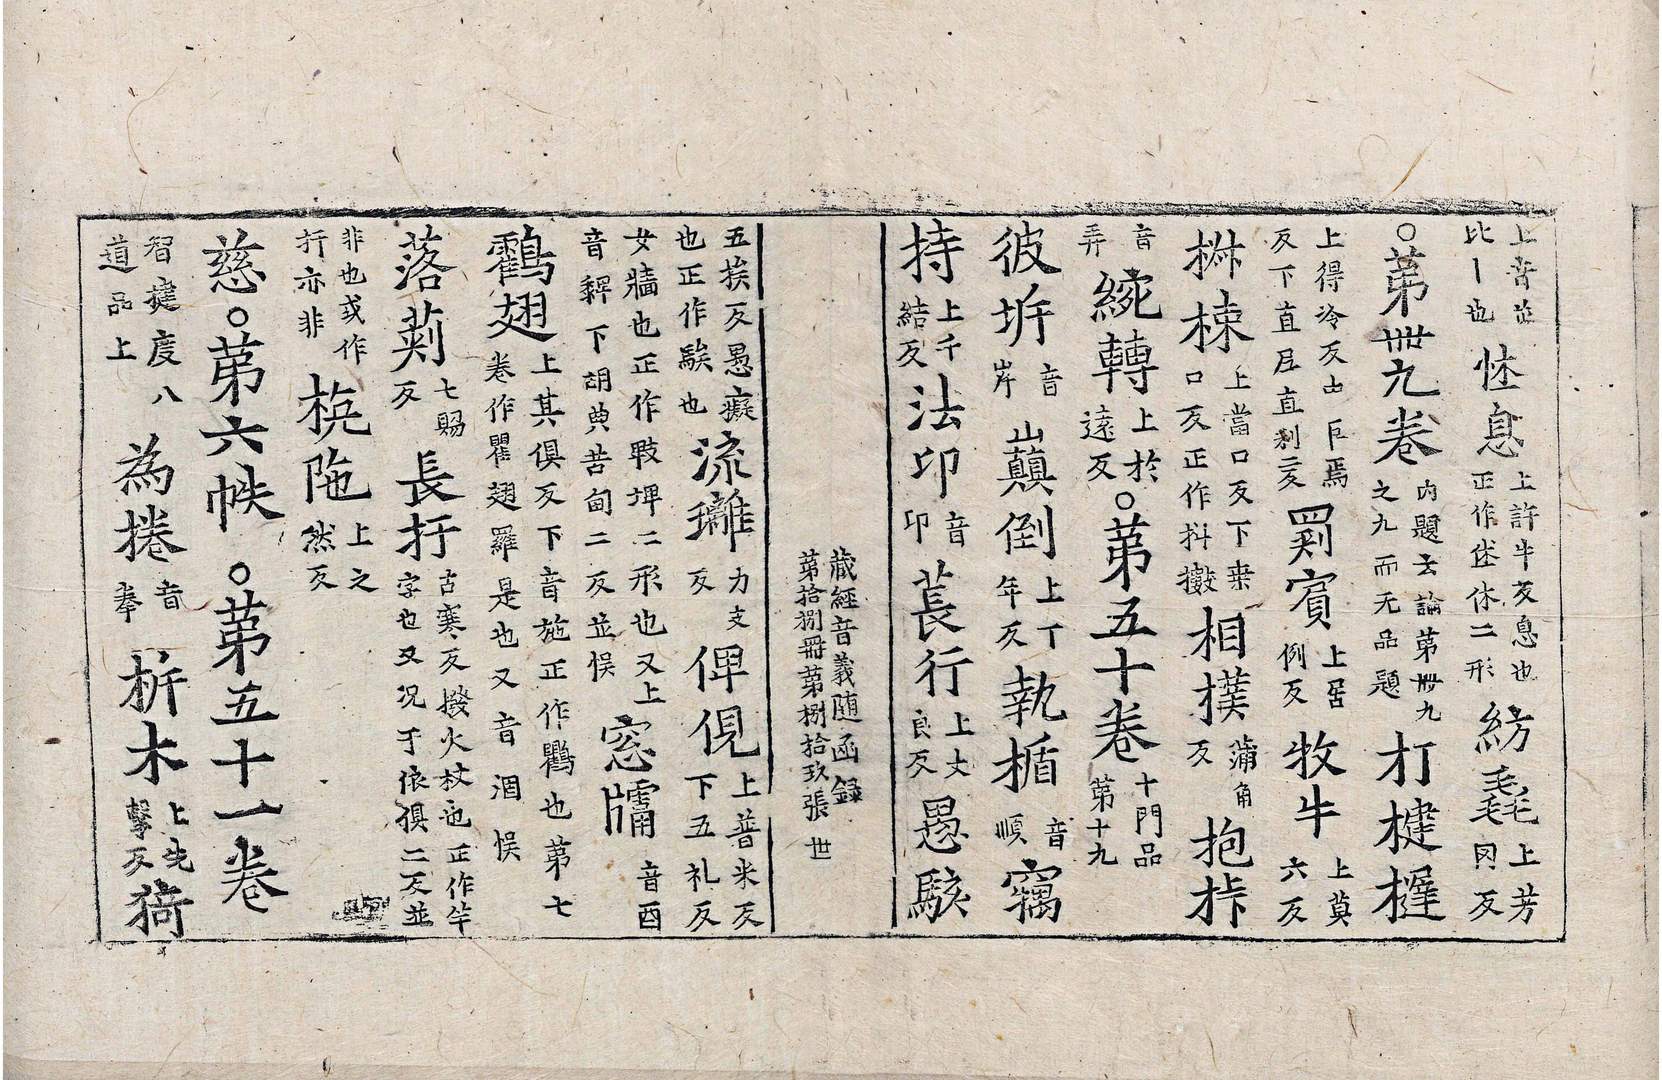 上音並比丨也恠息上許牛反息也正作㑜休二形紡毳上芳罔反
○第卌九卷内題云論第卌九之九而无品題打揵撻
上得冷反由巨焉反下直𡰱直刹二反罽賓上居例反牧牛上莫六反
枓㨂上當口反下桒口反正作抖擻相撲蒲角反抱
音弄綩轉上於遠反○第五十卷十門品第十九
彼㘁音岸山巔倒上丁年反執楯音順竊
持上千結反法印音印萇行上丈良反愚騃
藏經音義随函録
第拾捌冊第捌拾玖張 世
五挨反愚癡也正作騃也流離力支反俾倪上普米反下五礼反
女牆也正作㪏埤二形也又上音睥下胡典苦甸二反並悮窓牖音酉
鸖翅上其俱反下音施正作鸜也第七卷作瞿翅羅是也又音涸悮
落莿七賜反長扜古寒反撥火杖也正作竿字也又况于依俱二反並
非也或作扜亦非桄陁上之然反
慈○第六帙○第五十一卷
智揵度八道品上為捲音拳析木上先擊反猗